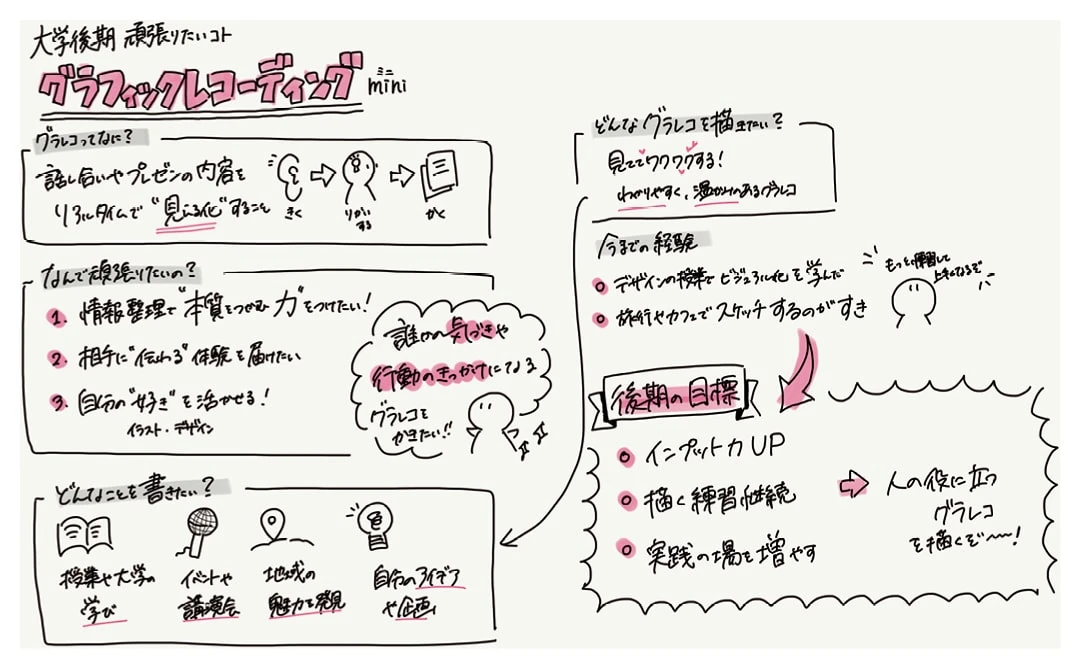 大学後期 頑張りたいコト
グラフィックレコーディング ミニ mini
グラレコってなに?
話し合いやプレゼンの内容を
リアルタイムで"見える化"すること
きく
りかい
する
かく
なんで頑張りたいの?
1. 情報整理で"本質をつかむ力"をつけたい!
2. 相手に"伝わる"体験を届けたい
3. 自分の"好き"を活かせる!
イラスト・デザイン
誰かの気づきや
行動のきっかけになる
グラレコを
かきたい!!
どんなことを書きたい?
授業や大学の
学び
イベントや
講演会
地域の
魅力を発見
自分のアイデア
や企画
どんなグラレコを描きたい?
見ててワクワクする!
わかりやすく、温かみのあるグラレコ
今までの経験
デザインの授業でビジュアル化を学んだ
旅行やカフェでスケッチするのがすき
もっと練習して
上手くなるぞ
後期の目標
インプット力UP
描く練習継続
実践の場を増やす
人の役に立つ
グラレコ
を描くぞ〜〜!